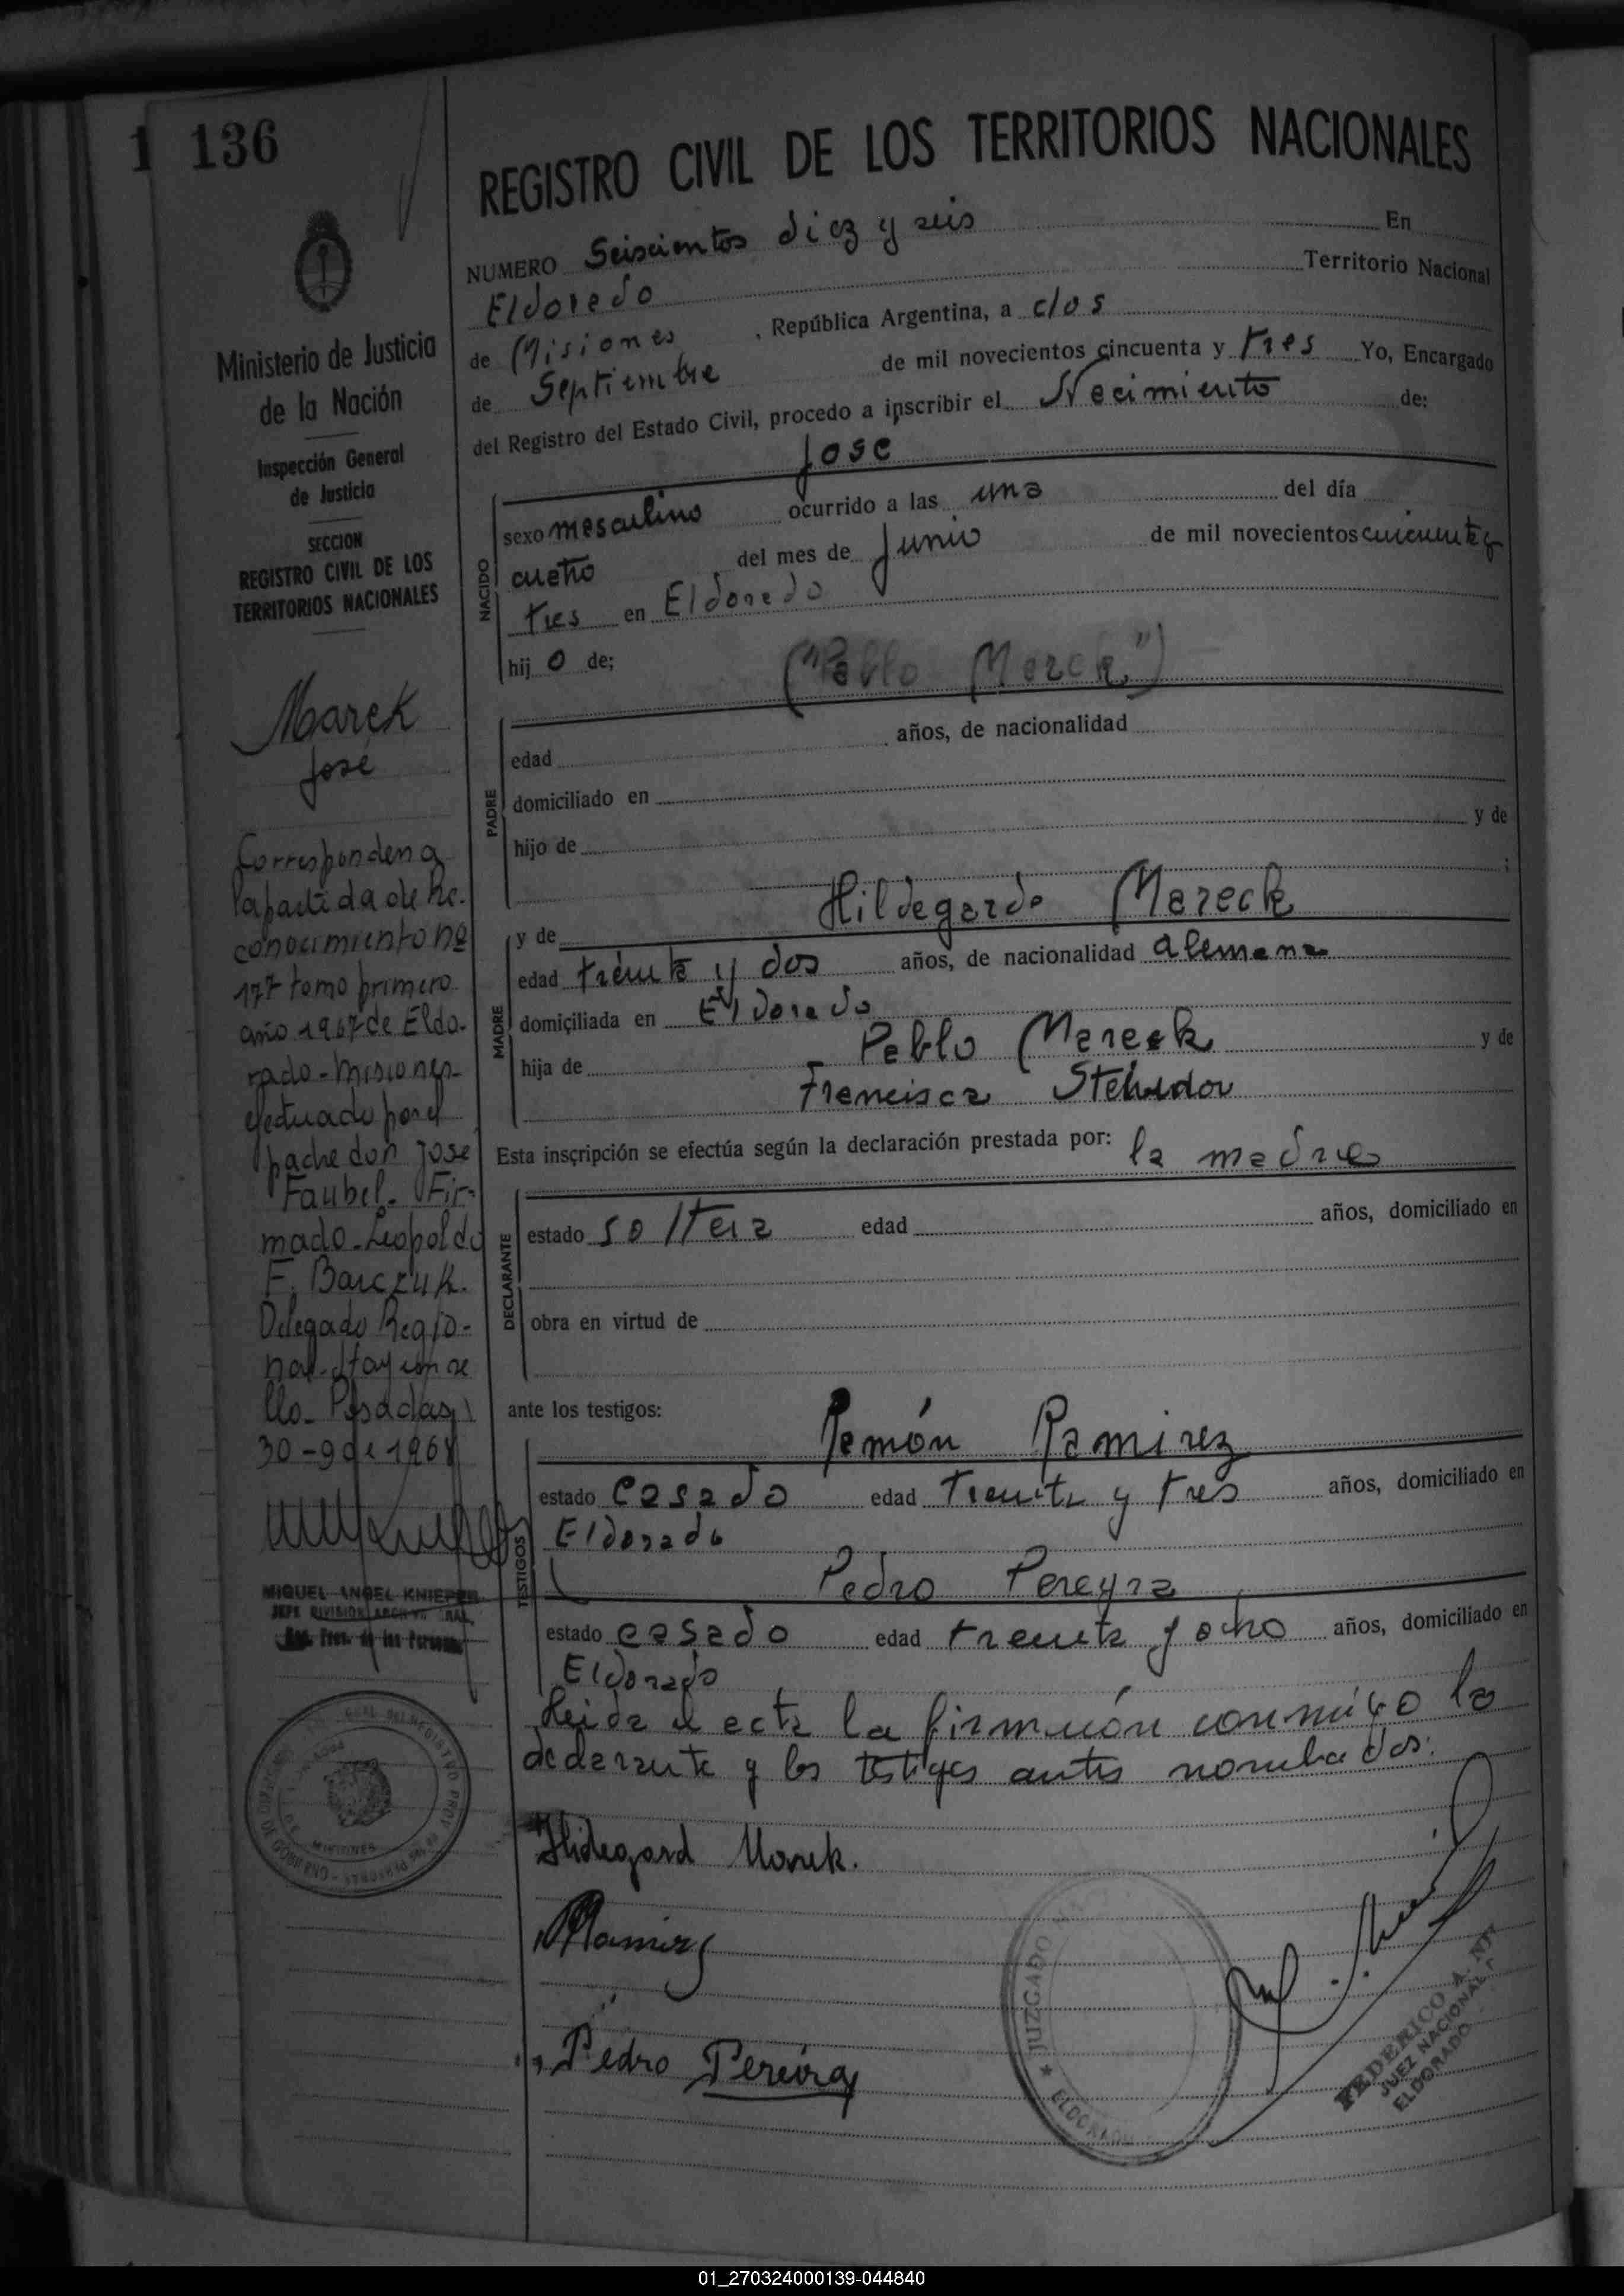 1 136
REGISTRO CIVIL DE LOS TERRITORIOS NACIONALES
NUMERO Seiscientos diez y seis En
Eldorado Territorio Nacional
de Misiones, República Argentina, a dos
de Septiembre de mil novecientos cincuenta y tres Yo, Encargado
del Registro del Estado Civil, procedo a inscribir el Nacimiento de:
Jose
NACIDO
sexo masculino ocurrido a las una del día
cuatro del mes de Junio de mil novecientos cincuenta y
tres en Eldorado
hijo de; ("Pablo Marek")
PADRE
edad años, de nacionalidad
domiciliado en
hijo de y de
;
MADRE
y de Hildegarda Mareck
edad treinta y dos años, de nacionalidad alemana
domiciliada en Eldorado
hija de Pablo Mareck y de
Francisca
Esta inscripción se efectúa según la declaración prestada por: la madre
DECLARANTE
estado soltera edad años, domiciliado en
obra en virtud de
ante los testigos:
Ramón Ramirez
TESTIGOS
estado casado edad Treinta y tres años, domiciliado en
Eldorado
Pedro Pereyra
estado casado edad treinta y ocho años, domiciliado en
Eldorado
Leida el acta la firmaron conmigo la
declarante y los testigos antes nombrados.
Hildegard Marek.
Ramirez
Pedro Pereira
JUZGADO
★ ELDORADO
FEDERICO A.
JUEZ NACIONAL
ELDORADO
Ministerio de Justicia
de la Nación
Inspección General
de Justicia
SECCION
REGISTRO CIVIL DE LOS
TERRITORIOS NACIONALES
Marek
José
Corresponden a
la partida de Re-
conocimiento nº
177 tomo primero
año 1967 de Eldo-
rado - Misiones -
efectuado por el
padre don Jose
Faubel - Fir-
mado - Leopoldo
F. Barczuk.
Delegado Regio-
nal - Hay un se
llo - Posadas,
30 - 9 de 1968
MIGUEL ANGEL KNIEPER
JEFE DIVISION ARCHIVO GRAL.
Reg. Prov. de las Personas
MISIONES
01_270324000139-044840